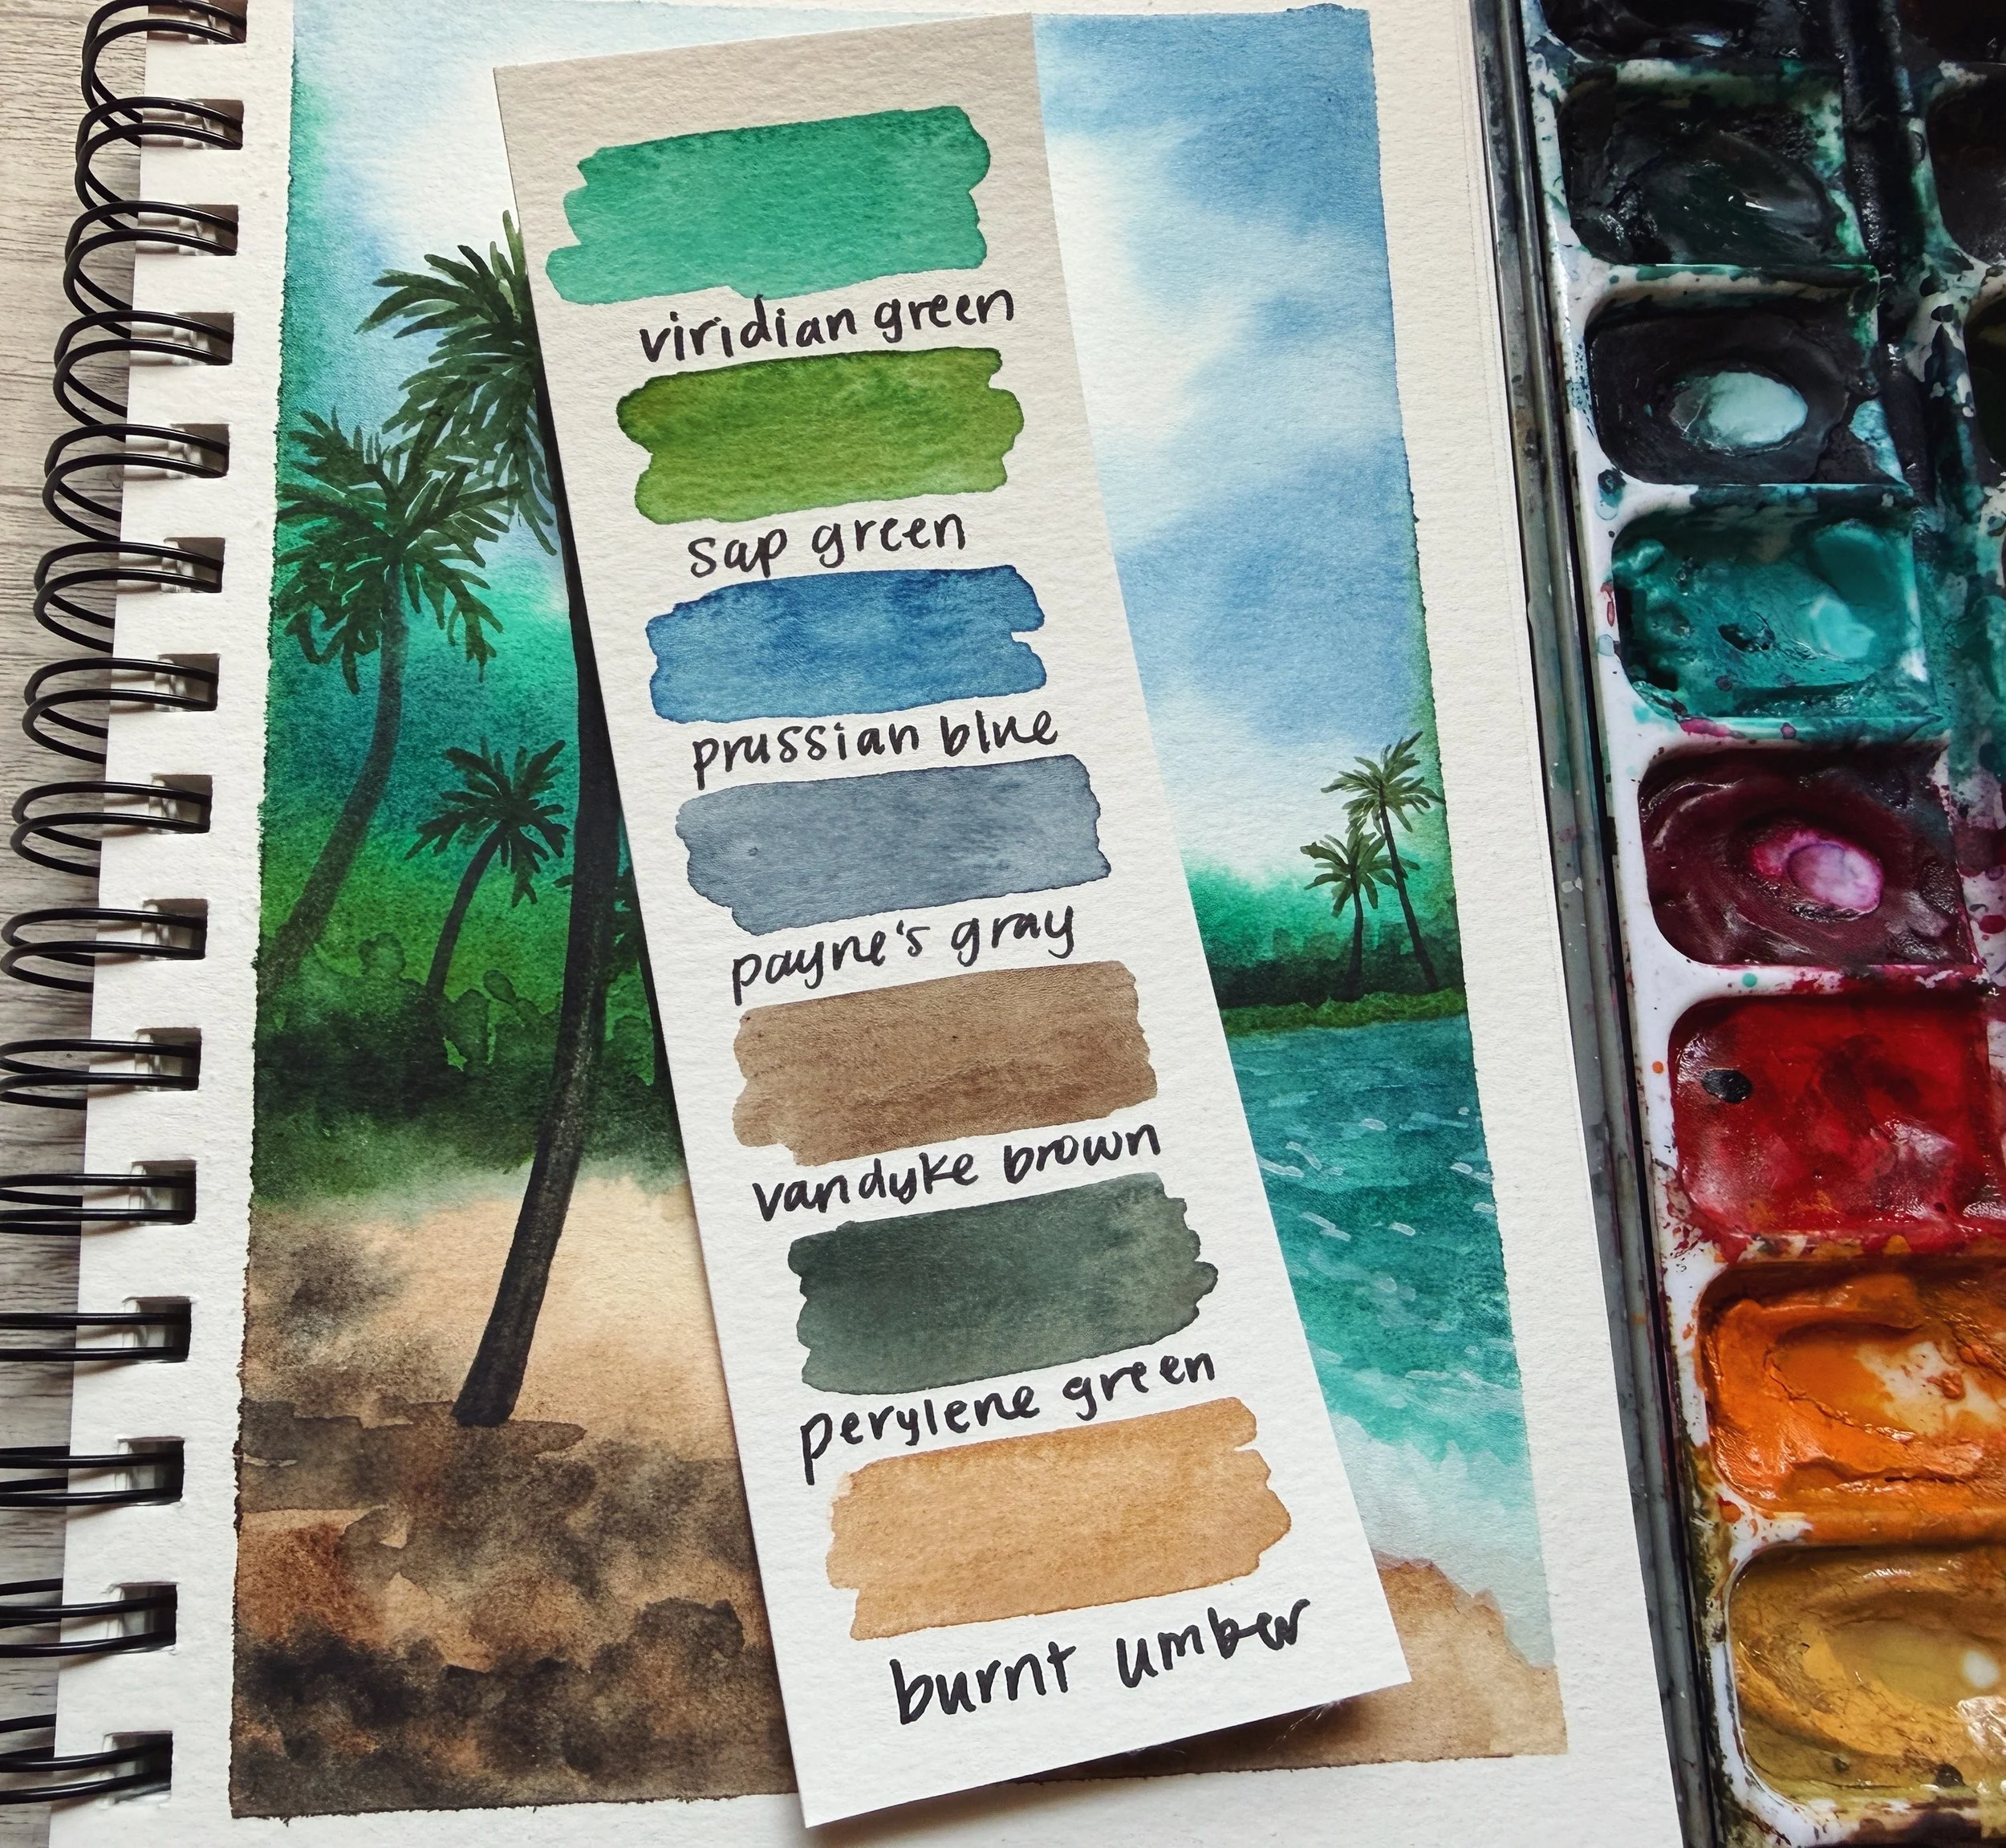 viridian green
sap green
prussian blue
payne's gray
vandyke brown
perylene green
burnt umber